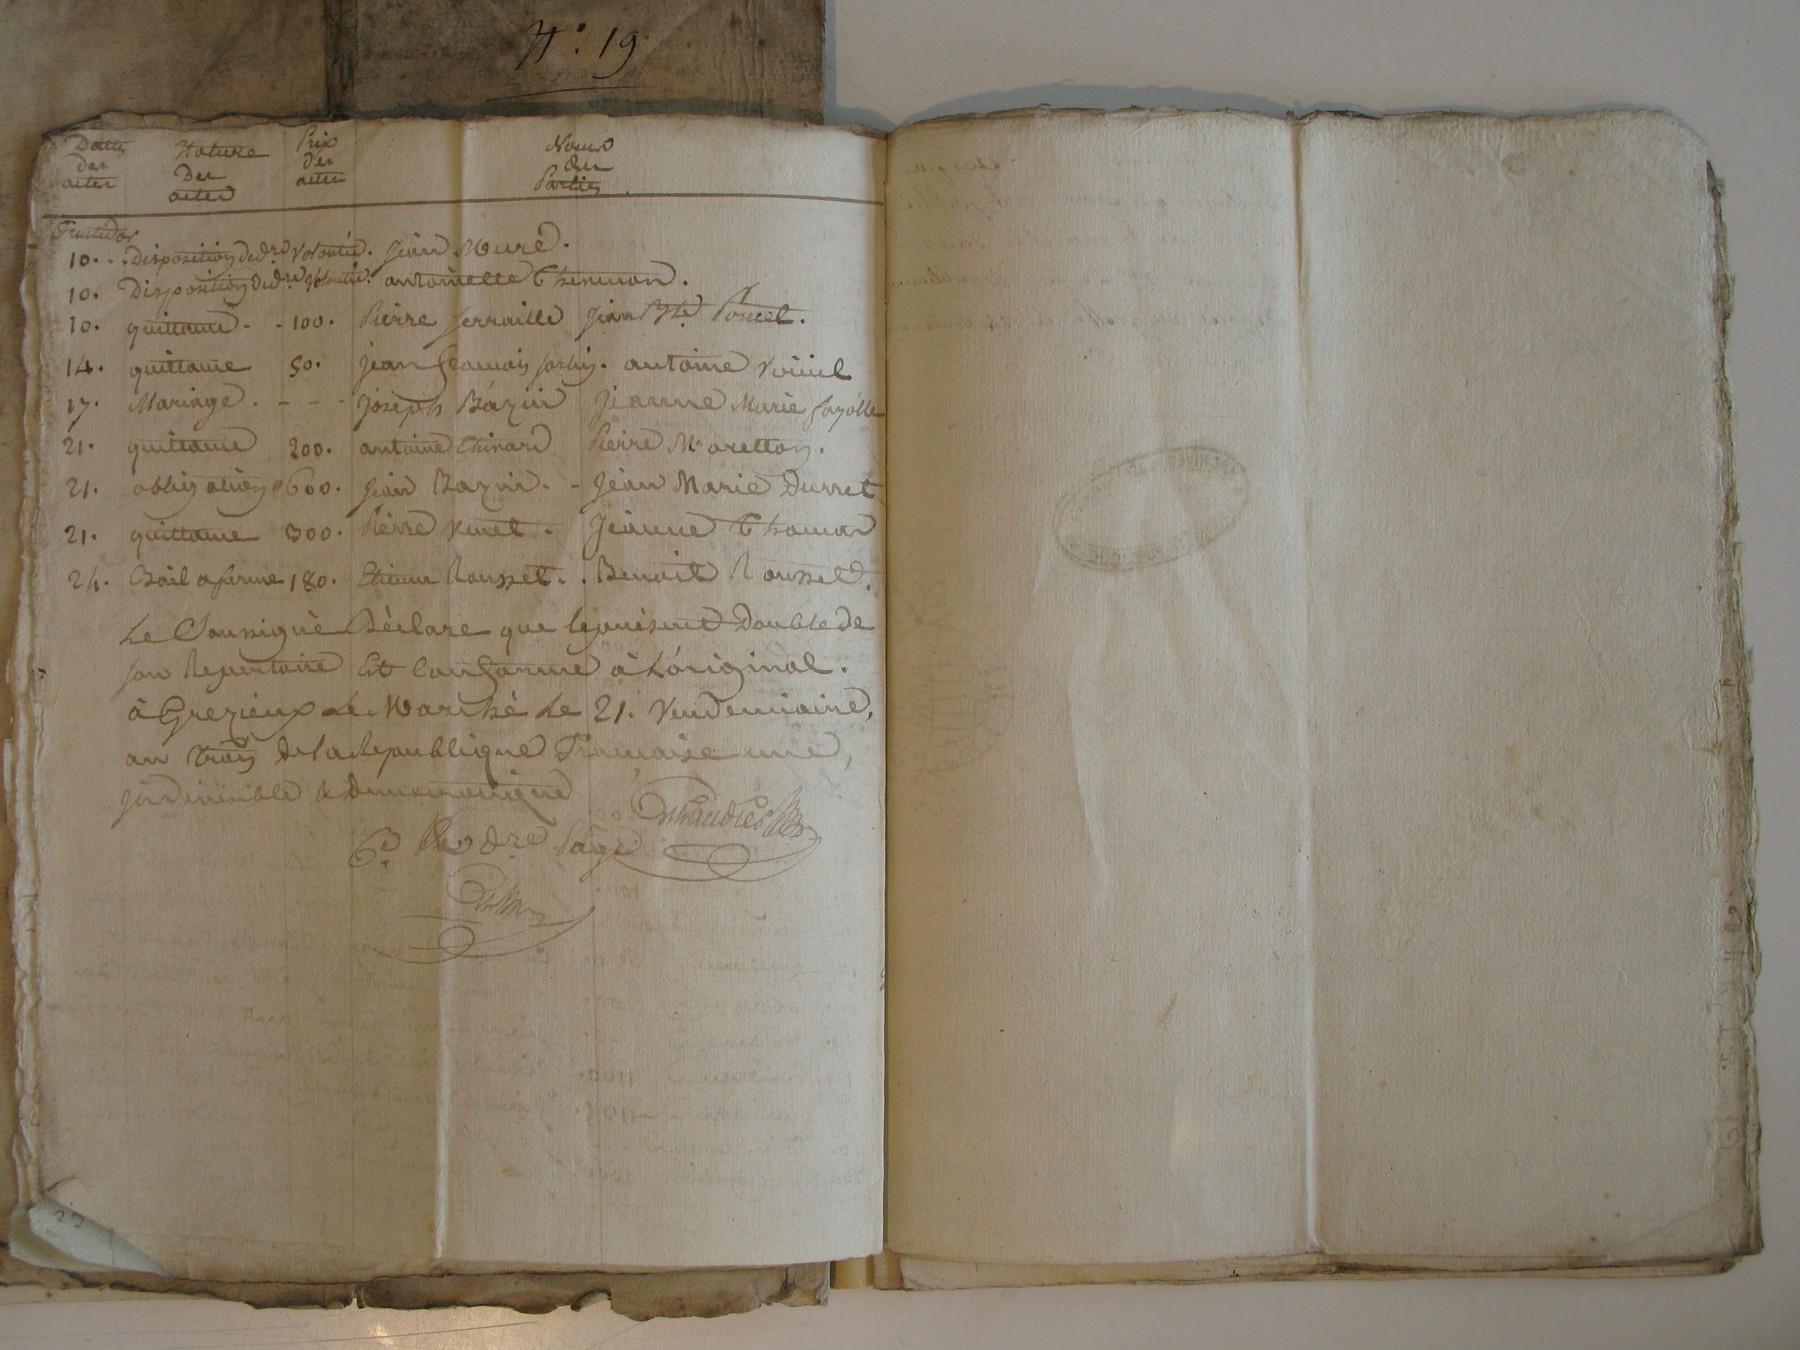 N.° 19.
Dattes des actes
Nature Des actes
Prix des actes
Noms des Parties
Fructidor
10. Disposition de d.re volonté. Jean Muré.
10. Disposition de d.re volonté. antoinette
10. quittance. 100. Pierre Jean Bte Poncet.
14. quittance 50. jean françois antoine
17. Mariage. - - - joseph Bazin Jeanne Marie fayolle
21. quittance 200. antoine Chirard Pierre Moretton.
21. obligation 600. Jean Bazin. - Jean Marie Durret
21. quittance 300. Pierre Jeanne
24. Bail a ferme 180. Etienne Rousset. Benoit Rousset.
Le Soussigné Déclare que le présent Double de
son Repertoire Est Conforme à L'original.
à Grezieux Le Marché Le 21. Vendemiaire,
an trois de la Republique Francaise une,
indivisible & democratique